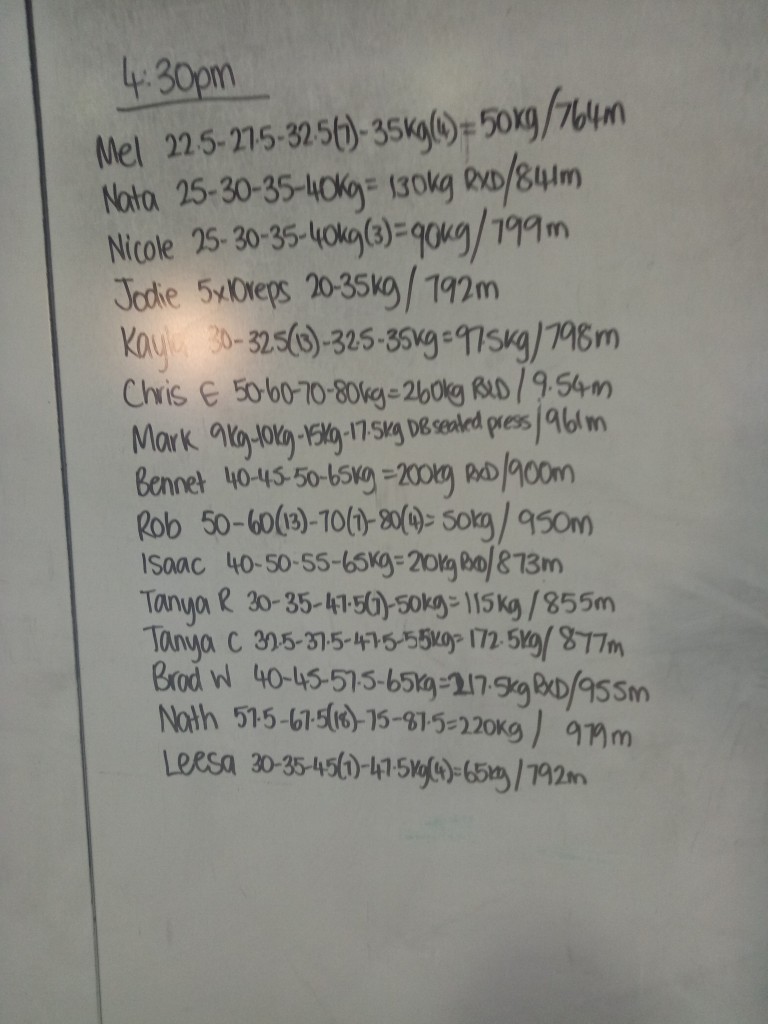 4:30pm
Mel 22.5-27.5-32.5(7)-35kg(4)=50kg/764m
Nata 25-30-35-40kg=130kg RXD/841m
Nicole 25-30-35-40kg(3)=90kg/799m
Jodie 5x10reps 20-35kg/792m
Kayla 30-32.5(13)-32.5-35kg=97.5kg/798m
Chris E 50-60-70-80kg=260kg RXD/9.54m
Mark 9kg-10kg-15kg-17.5kg DB seated press/961m
Bennet 40-45-50-65kg=200kg RXD/900m
Rob 50-60(13)-70(7)-80(4)=50kg/950m
Isaac 40-50-55-65kg=210kg RXD/873m
Tanya R 30-35-47.5(7)-50kg=115kg/855m
Tanya C 32.5-37.5-47.5-55kg=172.5kg/877m
Brad W 40-45-57.5-65kg=217.5kg RXD/955m
Nath 57.5-67.5(18)-75-87.5=220kg/ 979m
Leesa 30-35-45(7)-47.5kg(4)=65kg/792m